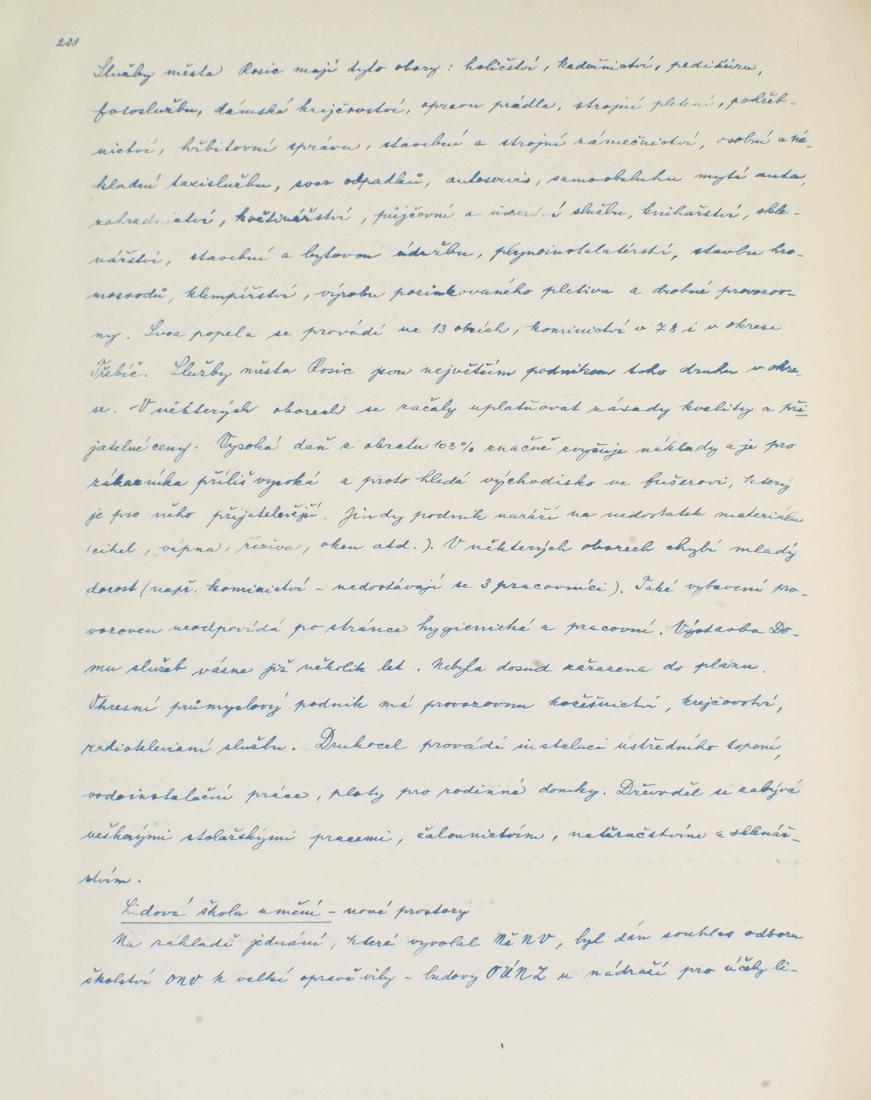 208
Služby města Rosic mají tyto obory: holičství, kadeřnictví, pedikúru,
fotoslužbu, dámské krejčovství, opravu prádla, strojní pletení, pohřeb-
nictví, hřbitovní správu, stavební a strojní zámečnictví, osobní a ná-
kladní taxislužbu, svoz odpadků, autoservis, samoobsluhu mytí auta,
zahradnictví, květinářství, půjčovní a úschovní službu, knihařství, skle-
nářství, stavební a bytovou údržbu, plynoinstalatérství, stavbu hro-
mosvodů, klempířství, výrobu pozinkovaného pletiva a drobné provozov-
ny. Svoz popela se provádí ve 13 obcích, kominictví v 78 i v okrese
Třebíč. Služby města Rosic jsou největším podnikem toho druhu v okre-
se. V některých oborech se začaly uplatňovat zásady kvality a při
jatelné ceny. Vysoká daň z obratu 103% značně zvyšuje náklady a je pro
zákazníka příliš vysoká a proto hledá východisko ve fušerovi, který
je pro něho přijatelnější. Jindy podnik naráží na nedostatek materiálu
(cihel, vápna, řeziva, oken atd.). V některých oborech chybí mladý
dorost (např. kominictví - nedostávají se 3 pracovníci). Také vybavení pro-
vozoven neodpovídá po stránce hygienické a pracovní. Výstavba Do-
mu služeb vázne již několik let. Nebyla dosud zařazena do plánu.
Okresní průmyslový podnik má provozovnu kožešnictví, krejčovství,
radiotelevizní službu. Drukocel provádí instalaci ústředního topení,
vodoinstalační práce, ploty pro rodinné domky. Dřevoděl se zabývá
veškerými stolařskými pracemi, čalounictvím, natěračstvím a sklenář-
stvím.
Lidová škola umění - nové prostory
Na základě jednání, které vyvolal MěNV, byl dán souhlas odboru
školství ONV k velké opravě vily - budovy OÚNZ u nádraží pro účely li-